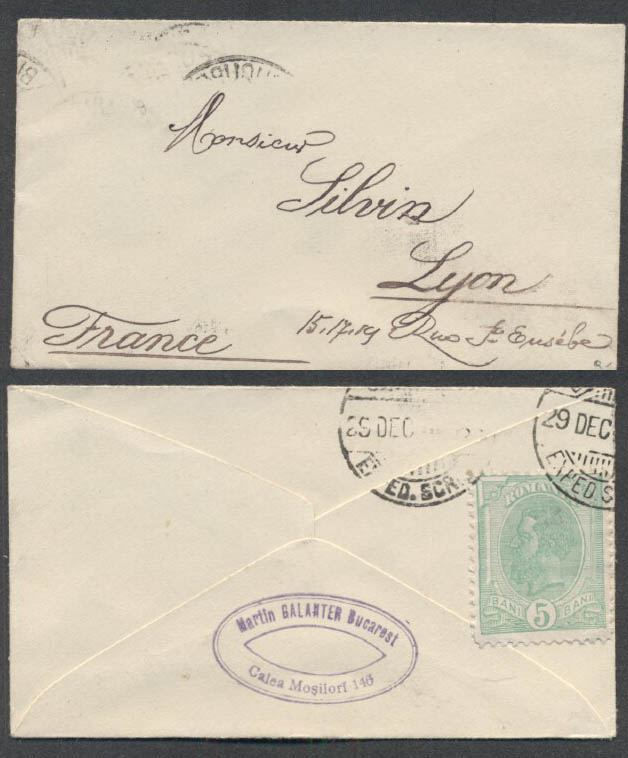 Monsieur
Silvin
Lyon
France
15.17.19 Rue St Eusèbe
29 DEC
29 DEC
ED. SCR
EXPED S
ROMANIA
BANI 5 BANI
Martin GALANTER Bucarest
Calea Moşilorĭ 146